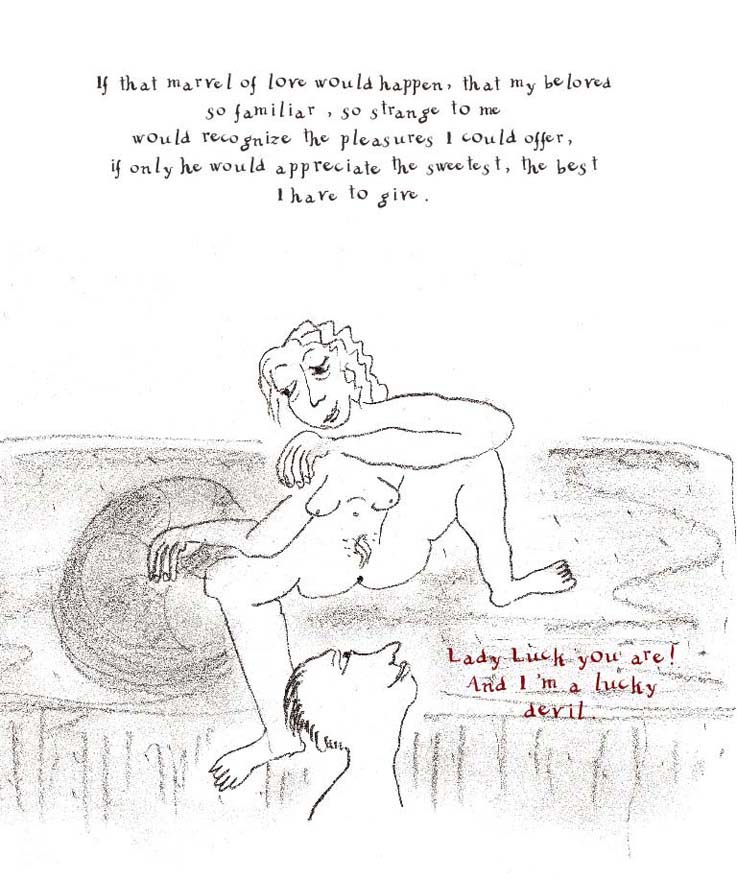 If that marvel of love would happen, that my beloved
so familiar , so strange to me
would recognize the pleasures I could offer,
if only he would appreciate the sweetest, the best
I have to give .
Lady Luck you are!
And I 'm a lucky
devil.